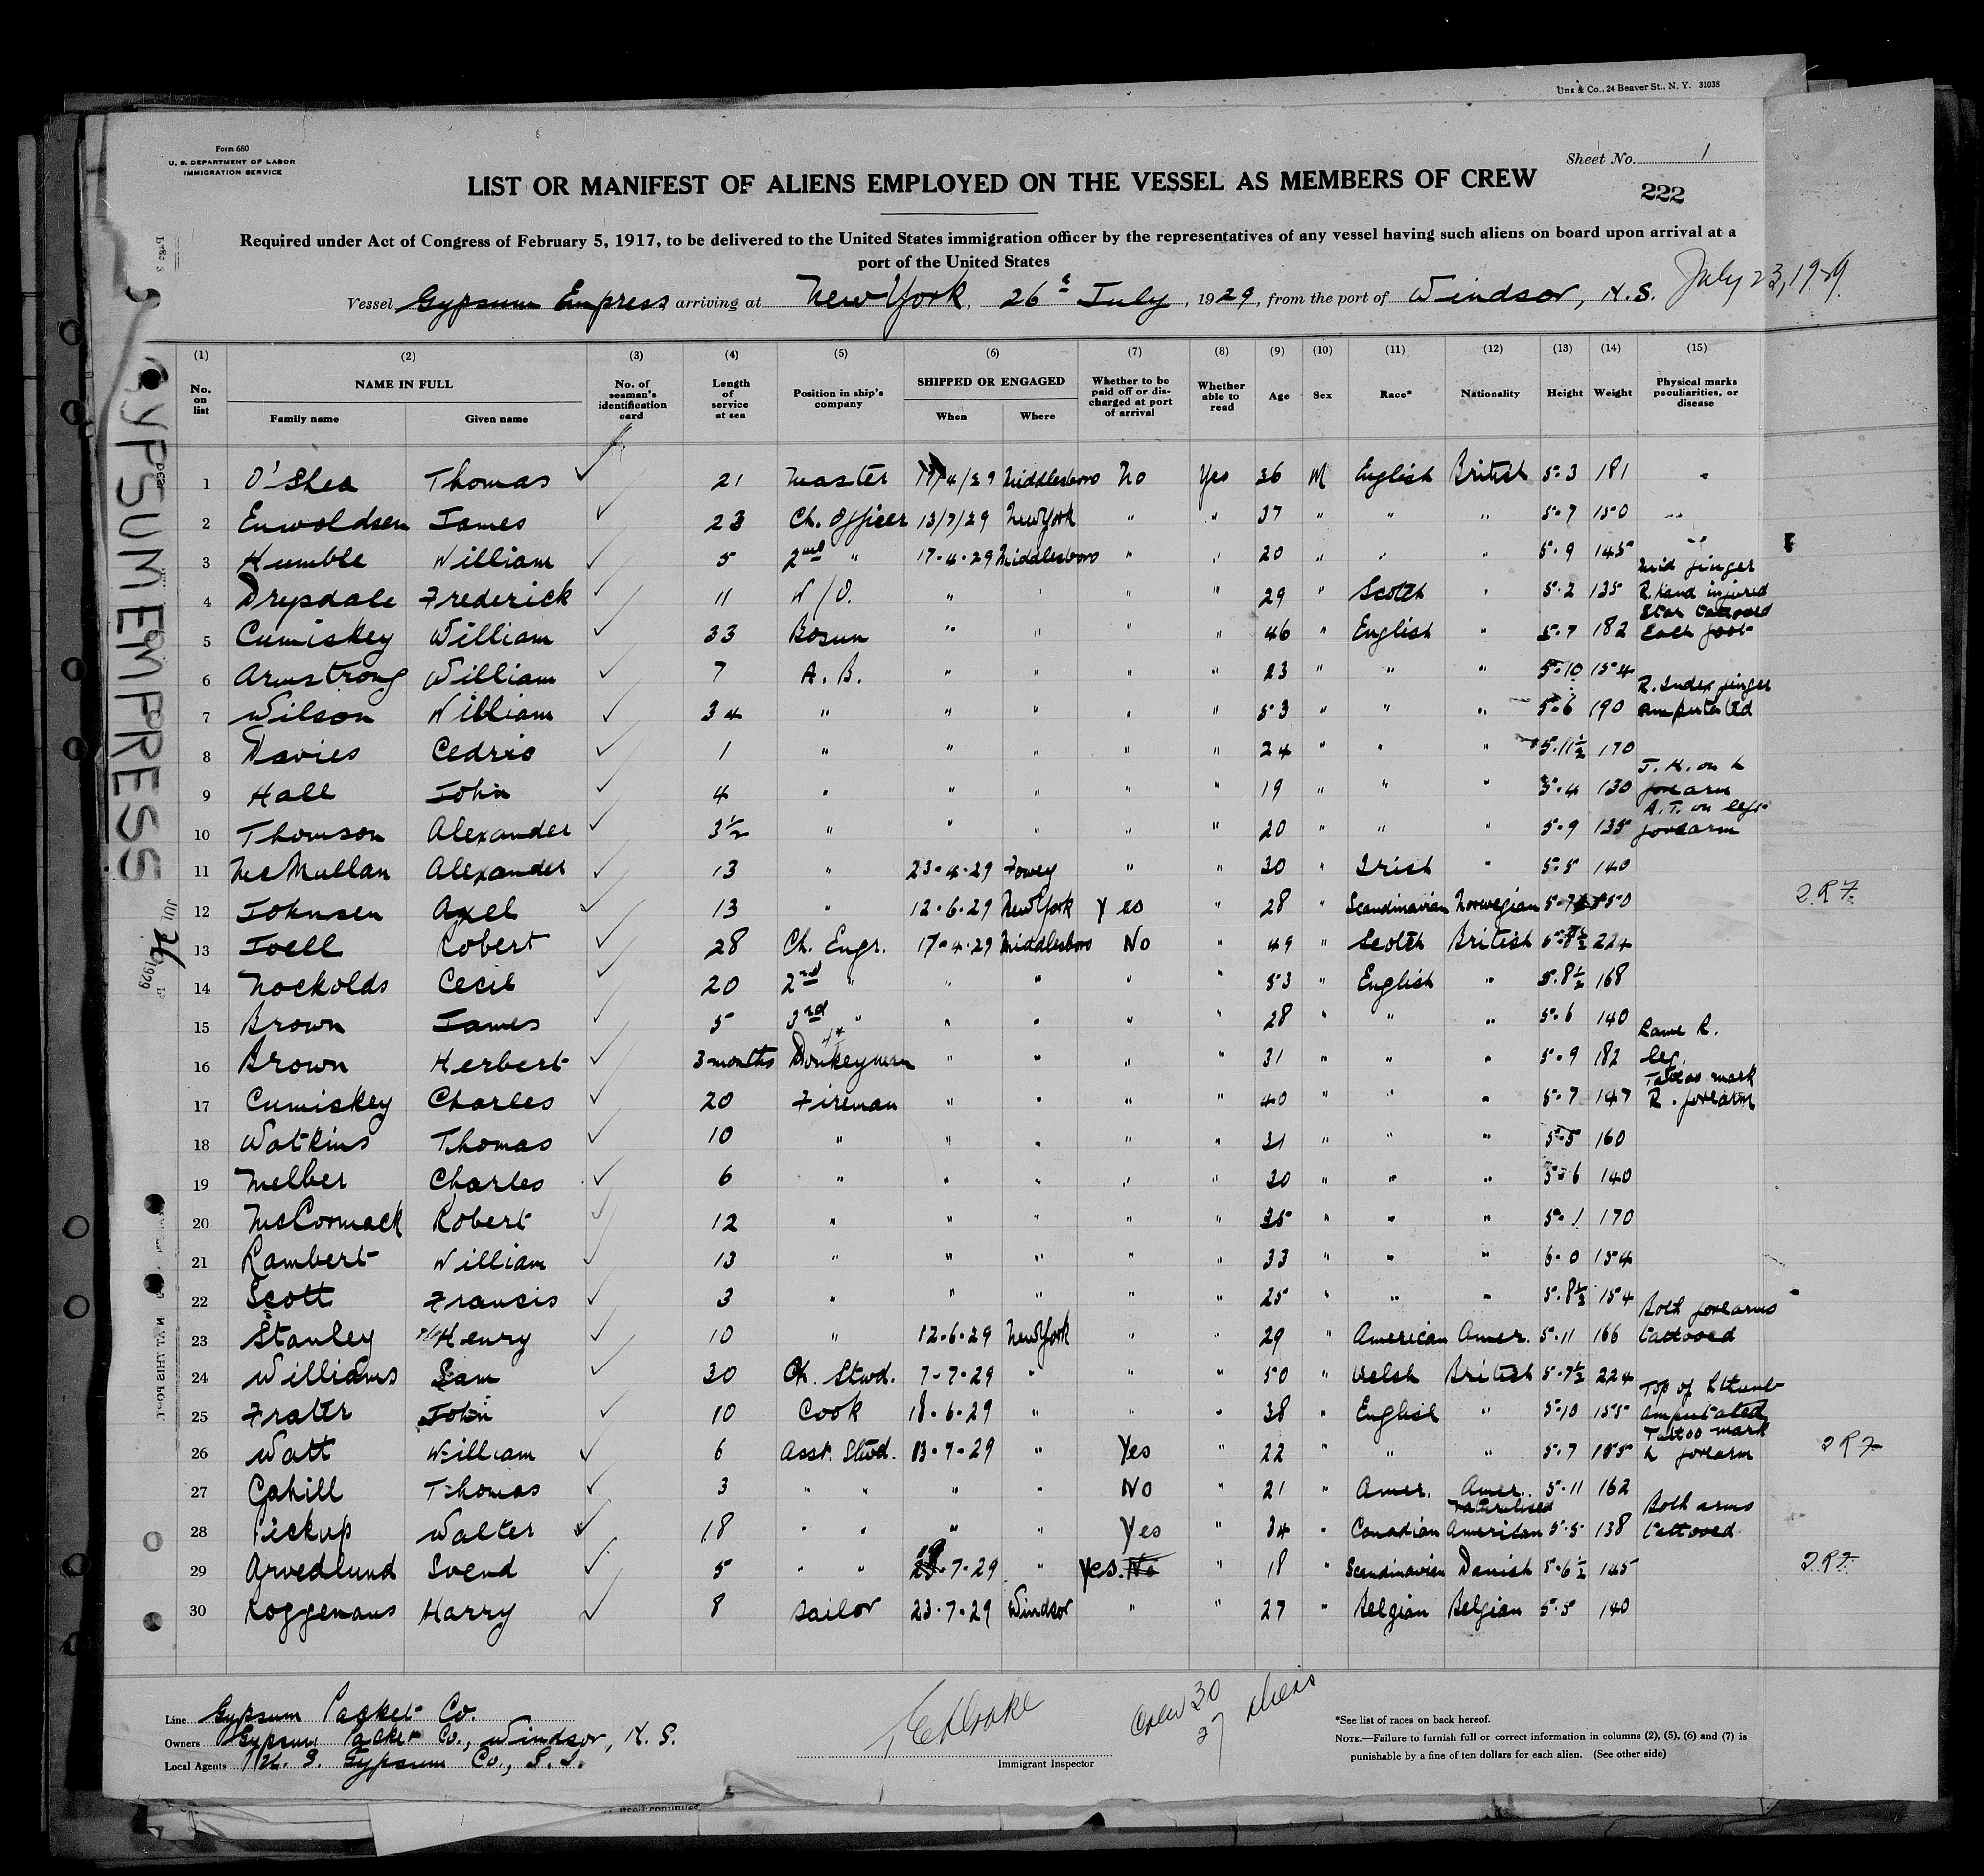 Uns & Co., 24 Beaver St., N. Y. 31038
Form 680
U. S. DEPARTMENT OF LABOR
IMMIGRATION SERVICE
Sheet No. 1
LIST OR MANIFEST OF ALIENS EMPLOYED ON THE VESSEL AS MEMBERS OF CREW
222
Required under Act of Congress of February 5, 1917, to be delivered to the United States immigration officer by the representatives of any vessel having such aliens on board upon arrival at a
port of the United States
July 23, 1929.
Vessel Gypsum Empress arriving at New York, 26th July, 1929, from the port of Windsor, N.S.
(1) (2) (3) (4) (5) (6) (7) (8) (9) (10) (11) (12) (13) (14) (15)
No. on list NAME IN FULL Family name Given name No. of seaman's identification card Length of service at sea Position in ship's company SHIPPED OR ENGAGED When Where Whether to be paid off or discharged at port of arrival Whether able to read Age Sex Race* Nationality Height Weight Physical marks peculiarities, or disease
1 O'Shea Thomas 21 Master 17/4/29 Middlesboro No Yes 36 M English British 5-3 181 -
2 Enwoldsen James 23 Ch. Officer 13/7/29 New York " " 37 " " " 5-7 150
3 Humble William 5 2nd " 17-4-29 Middlesboro " " 20 " " " 5-9 145
4 Drysdale Frederick 11 W/O. " " " " 29 " Scotch " 5-2 135 Mid finger R. hand injured
5 Cumiskey William 33 Bosun " " " " 46 " English " 5-7 182 Star tattooed Each foot
6 Armstrong William 7 A. B. " " " " 23 " " " 5-10 154
7 Wilson William 34 " " " " " 53 " " " 5-6 190 R. Index finger amputated
8 Davies Cedric 1 " " " " " 24 " " " 5-11½ 170
9 Hall John 4 " " " " " 19 " " " 5-4 130 J. H. on L forearm
10 Thomson Alexander 3½ " " " " " 20 " " " 5-9 135 A.T. on left forearm
11 McMullan Alexander 13 " 23-4-29 Fowey " " 30 " Irish " 5-5 140
12 Johnsen Axel 13 " 12-6-29 New York Yes " 28 " Scandinavian Norwegian 5-7 150
13 Joell Robert 28 Ch. Engr. 17-4-29 Middlesboro No " 49 " Scotch British 5-8½ 224
14 Nockolds Cecil 20 2nd " " " " " 53 " English " 5-8½ 168
15 Brown James 5 3rd " " " " " 28 " " " 5-6 140
16 Brown Herbert 3 months Donkeyman " " " " 31 " " " 5-9 182 Lame R. leg.
17 Cumiskey Charles 20 Fireman " " " " 40 " " " 5-7 147 Tattoo mark R. forearm
18 Watkins Thomas 10 " " " " " 31 " " " 5-5 160
19 Melber Charles 6 " " " " " 30 " " " 5-6 140
20 McCormack Robert 12 " " " " " 35 " " " 5-1 170
21 Lambert William 13 " " " " " 33 " " " 6-0 154
22 Scott Francis 3 " " " " " 25 " " " 5-8½ 154
23 Stanley Henry 10 " 12-6-29 New York " " 29 " American Amer. 5-11 166 Both forearms tattooed
24 Williams Sam 30 Ch. Stwd. 7-7-29 " " " 50 " Welsh British 5-7½ 224
25 Frater John 10 Cook 18-6-29 " " " 38 " English " 5-10 155 Top of L thumb amputated
26 Watt William 6 Asst. Stwd. 13-7-29 " Yes " 22 " " " 5-7 155 Tattoo mark L forearm
27 Cahill Thomas 3 " " " " No " 21 " Amer. Amer. 5-11 162
28 Pickup Walter 18 " " " " Yes " 34 " Canadian naturalised American 5-5 138 Both arms tattooed
29 Arvedlund Svend 5 " " 19-7-29 " Yes. No " 18 " Scandinavian Danish 5-6½ 145
30 Roggemans Harry 8 Sailor 23-7-29 Windsor " " 27 " Belgian Belgian 5-5 140
GYPSUM EMPRESS
JUL 26 1929
Line Gypsum Packet Co.
Owners Gypsum Packet Co., Windsor, N. S.
Local Agents U. S. Gypsum Co., S. I.
Immigrant Inspector
Crew 30
27 aliens
*See list of races on back hereof.
NOTE.—Failure to furnish full or correct information in columns (2), (5), (6) and (7) is
punishable by a fine of ten dollars for each alien. (See other side)